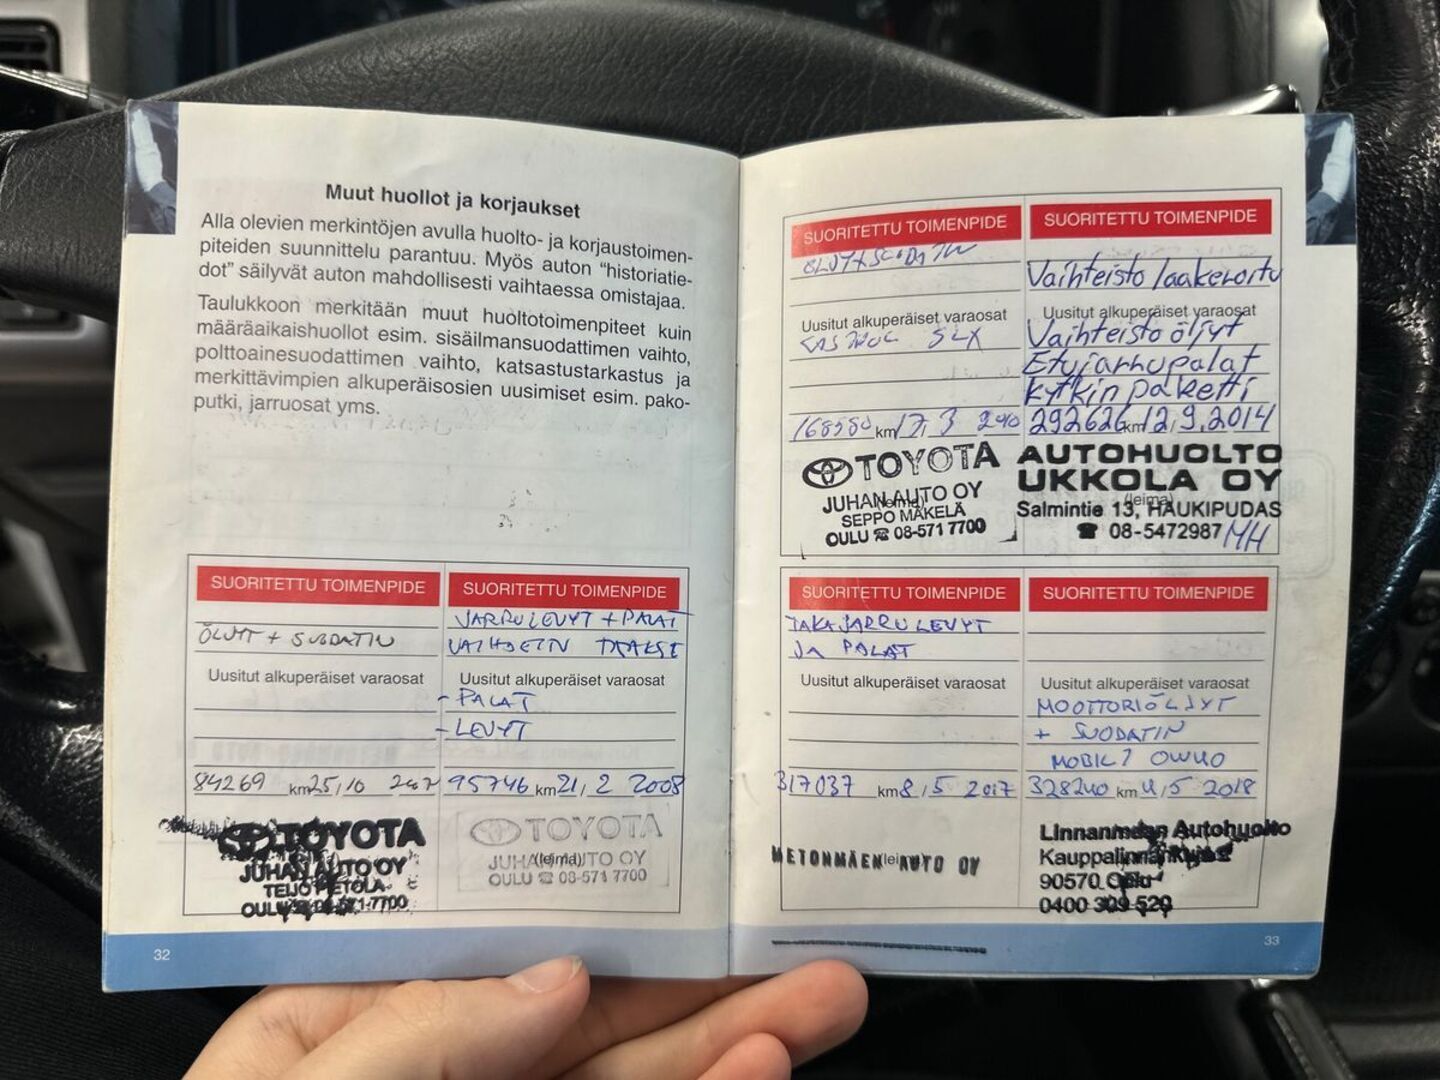 Muut huollot ja korjaukset
Alla olevien merkintöjen avulla huolto- ja korjaustoimen-
piteiden suunnittelu parantuu. Myös auton “historiatie-
dot” säilyvät auton mahdollisesti vaihtaessa omistajaa.
Taulukkoon merkitään muut huoltotoimenpiteet kuin
määräaikaishuollot esim. sisäilmansuodattimen vaihto,
polttoainesuodattimen vaihto, katsastustarkastus ja
merkittävimpien alkuperäisosien uusimiset esim. pako-
putki, jarruosat yms.
SUORITETTU TOIMENPIDE
ÖLJYT + SUODATIN
Uusitut alkuperäiset varaosat
84269 km 25,10 2007
TOYOTA
JUHAN AUTO OY
TEIJO PIETOLA
OULU ☎ 08-571 7700
SUORITETTU TOIMENPIDE
JARRULEVYT + PALAT
VAIHDETTN TAAKSE
Uusitut alkuperäiset varaosat
- PALAT
- LEVYT
95746 km 21, 2 2008
TOYOTA
JUHAN AUTO OY
(leima)
OULU ☎ 08-571 7700
32
SUORITETTU TOIMENPIDE
Uusitut alkuperäiset varaosat
SLX
168580 km 17, 3 2010
TOYOTA
JUHAN AUTO OY
(leima)
SEPPO MÄKELÄ
OULU ☎ 08-571 7700
SUORITETTU TOIMENPIDE
Vaihteisto laakerointi
Uusitut alkuperäiset varaosat
Vaihteisto öljyt
Etujarrupalat
Kytkin paketti
292626 km 12,9.2014
AUTOHUOLTO
UKKOLA OY
(leima)
Salmintie 13, HAUKIPUDAS
☎ 08-5472987 MH
SUORITETTU TOIMENPIDE
TAKAJARRULEVYT
JA PALAT
Uusitut alkuperäiset varaosat
317037 km 8,5 2017
METONMÄEN AUTO OY
(leima)
SUORITETTU TOIMENPIDE
Uusitut alkuperäiset varaosat
MOOTTORIÖLJYT
+ SUODATIN
328240 km 4,5 2018
Linnanmaan Autohuolto
90570 Oulu
0400 309 520
33